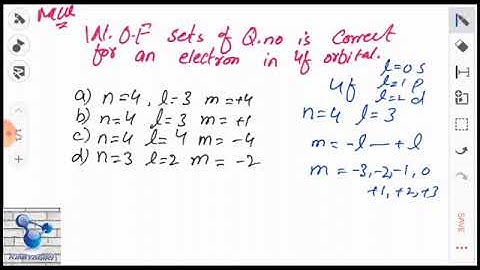 1A). O.F sets of Q.no is correct
for an electron in 4f orbital.
a) n=4, l=3 m=+4
b) n=4 l=3 m=+1
c) n=4 l=4 m=-4
d) n=3 l=2 m=-2
l=0 s
4f l=1 p
l=2 d
n=4 l=3
m = -l — +l
m = -3,-2,-1,0
+1,+2,+3
SAVE